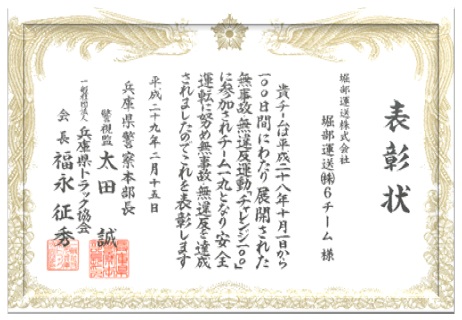 表彰状
堀部運送株式会社
堀部運送㈱6チーム 様
貴チームは平成二八年十月一日から
一〇〇日間にわたり展開された
無事故・無違反運動“チャレンジ一〇〇”
に参加されチーム一丸となり安全
運転に努め無事故・無違反を達成
されましたのでこれを表彰します
平成二十九年二月十五日
兵庫県警察本部長
警視監 太田 誠
一般社団法人 兵庫県トラック協会
会長 福永征秀